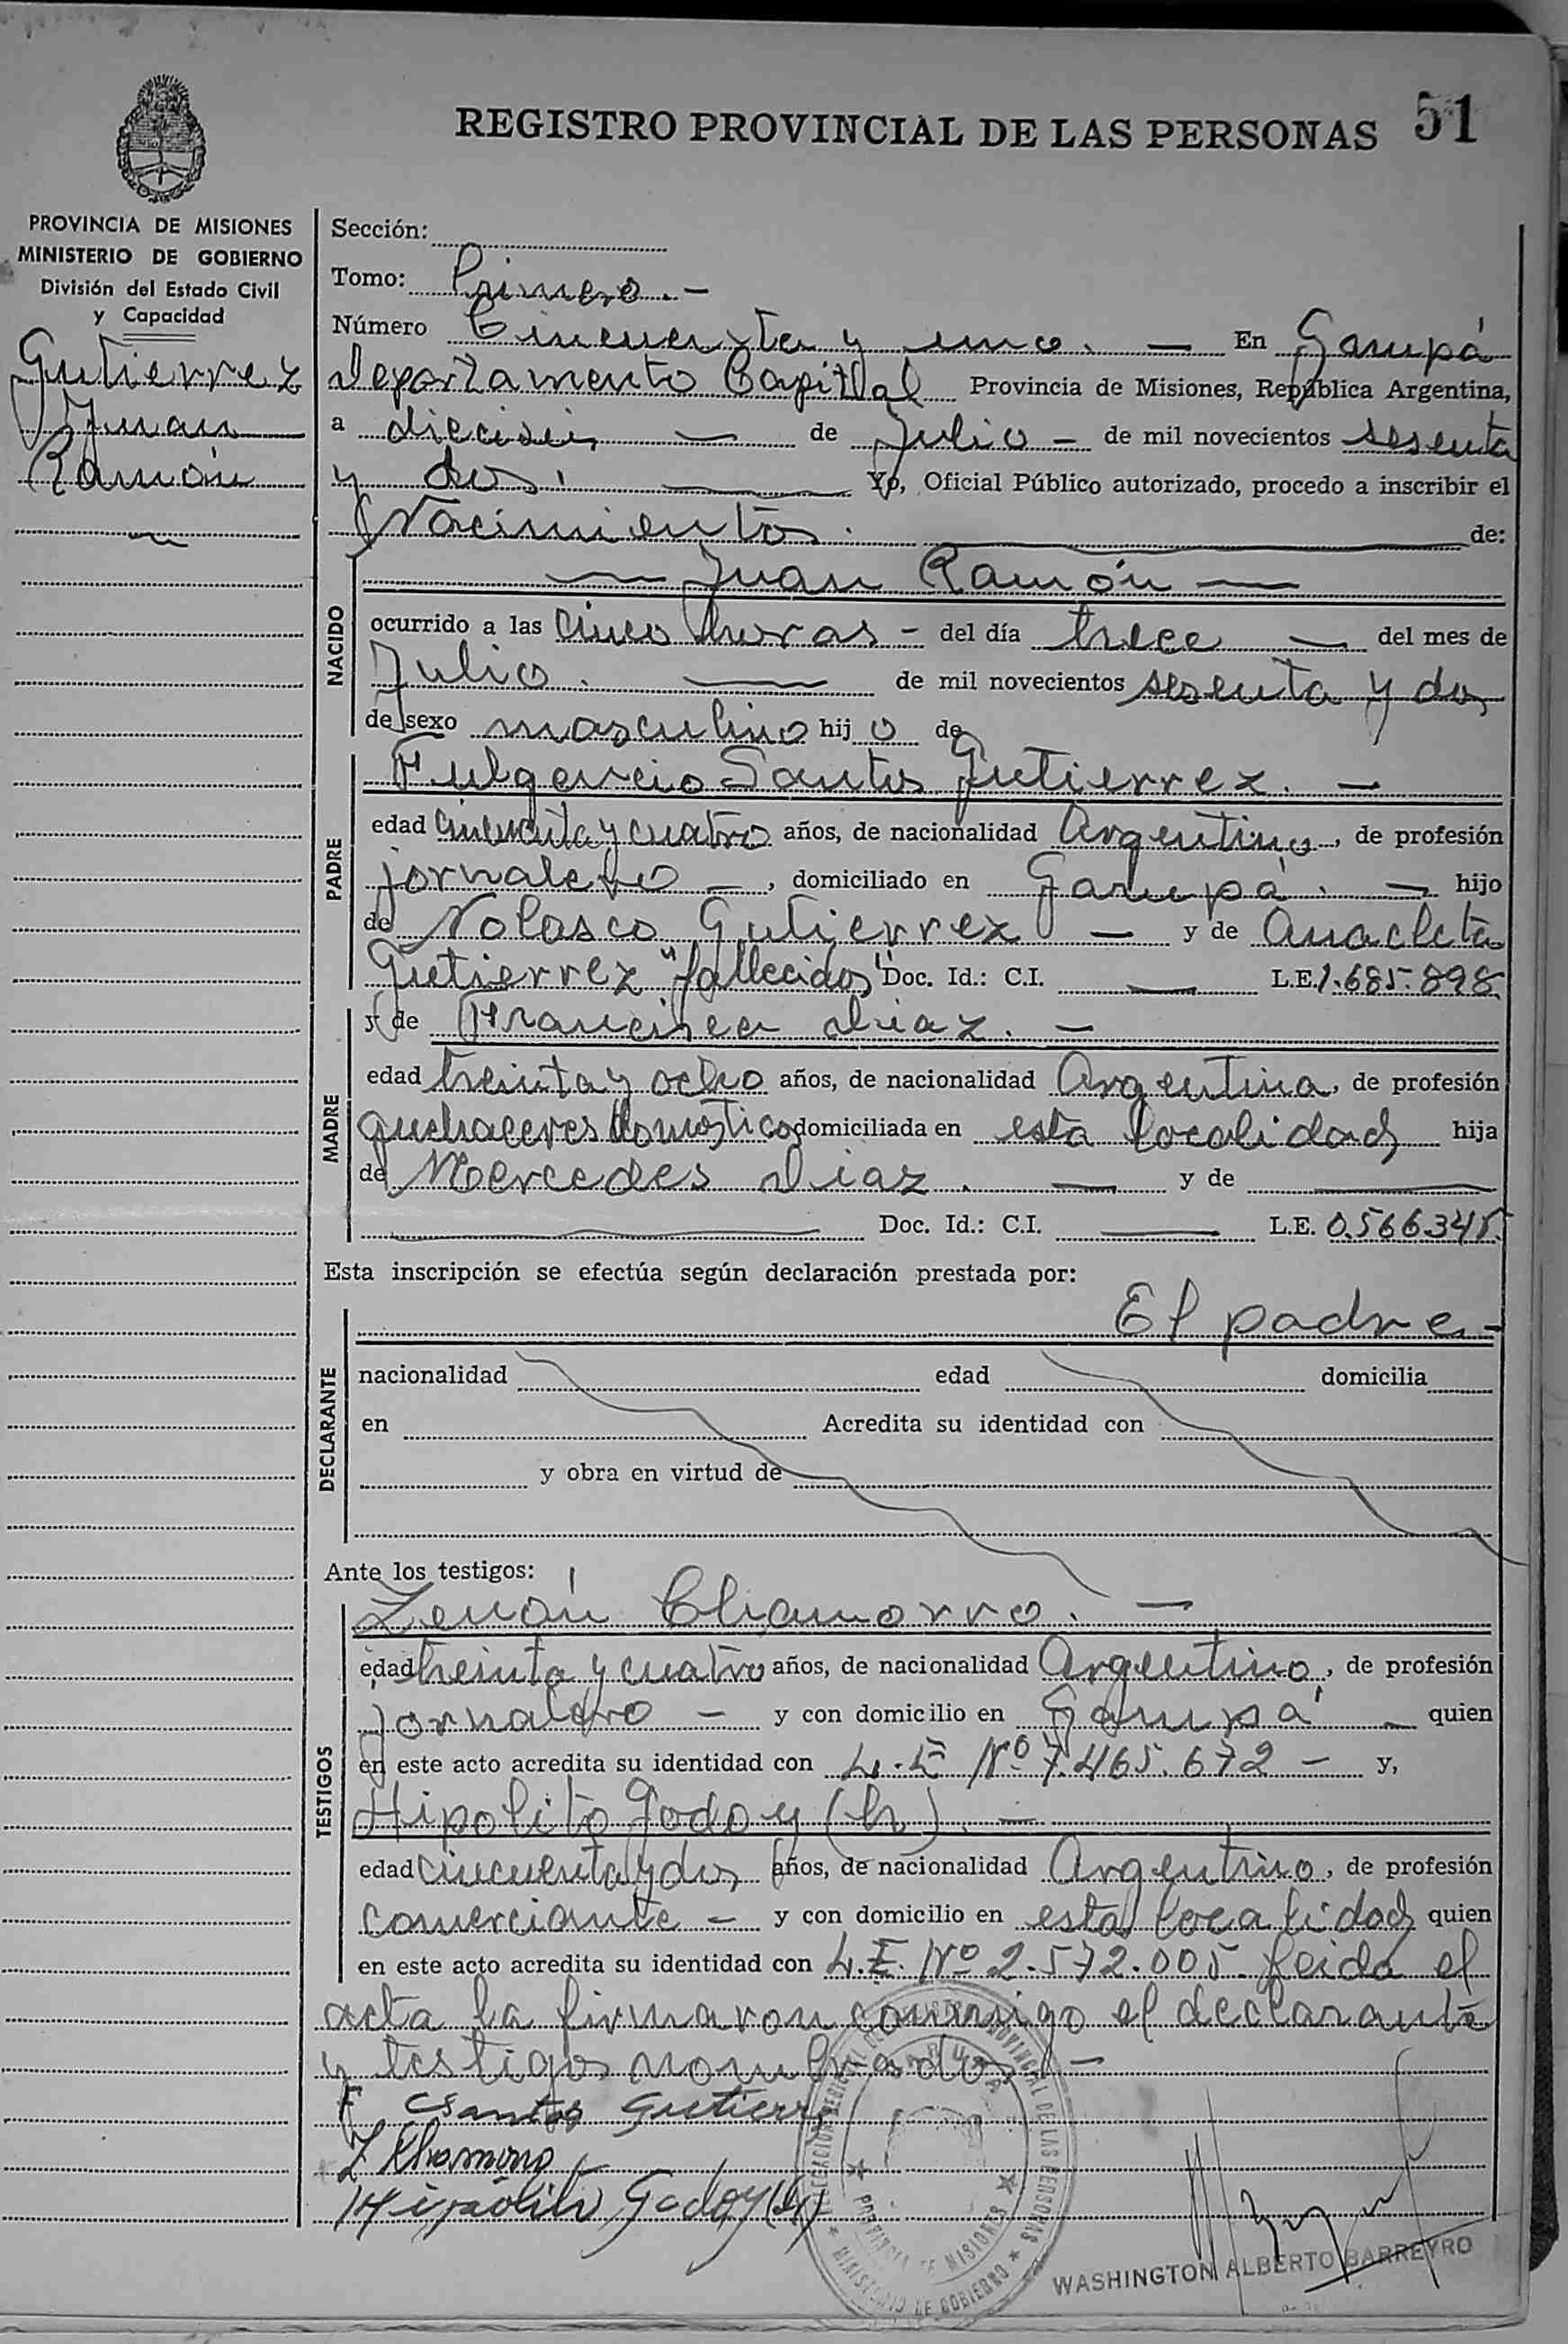 REGISTRO PROVINCIAL DE LAS PERSONAS 51
PROVINCIA DE MISIONES
MINISTERIO DE GOBIERNO
División del Estado Civil
y Capacidad
Gutierrez
Juan
Ramón
Sección:
Tomo: Primero. -
Número Cincuenta y uno. - En Garupá
Departamento Capital Provincia de Misiones, República Argentina,
a dieciseis - de Julio - de mil novecientos sesenta
y dos. Yo, Oficial Público autorizado, procedo a inscribir el
Nacimiento. de:
NACIDO
Juan Ramón
ocurrido a las cinco horas - del día trece - del mes de
Julio. de mil novecientos sesenta y dos
de sexo masculino hijo de
PADRE
Fulgencio Santos Gutierrez. -
edad cincuenta y cuatro años, de nacionalidad Argentino, de profesión
jornalero -, domiciliado en Garupá. - hijo
de Nolasco Gutierrez - y de Anacleta
Gutierrez "fallecidos" Doc. Id.: C.I. - L.E. 1.685.898
MADRE
y de Francisca Diaz. -
edad treinta y ocho años, de nacionalidad Argentina, de profesión
quehaceres domésticos domiciliada en esta localidad hija
de Mercedes Diaz. - y de
Doc. Id.: C.I. - L.E. 0.566.345
Esta inscripción se efectúa según declaración prestada por:
El padre -
DECLARANTE
nacionalidad edad domicilia
en Acredita su identidad con
y obra en virtud de
Ante los testigos:
TESTIGOS
Zenón Chamorro. -
edad treinta y cuatro años, de nacionalidad Argentino, de profesión
Jornalero - y con domicilio en Garupá - quien
en este acto acredita su identidad con L.E Nº 7.465.672 - y,
Hipolito Godoy (h). -
edad cincuenta y dos años, de nacionalidad Argentino, de profesión
comerciante - y con domicilio en esta localidad quien
en este acto acredita su identidad con L.E. Nº 2.572.005. Leida el
acta la firmaron conmigo el declarante
y testigos nombrados. -
F Santos Gutierrez
Z Chamorro
Hipólito Godoy (h)
PROVINCIAL DE LAS PERSONAS
GARUPA
PROVINCIA DE MISIONES
MINISTERIO DE GOBIERNO
WASHINGTON ALBERTO BARREYRO